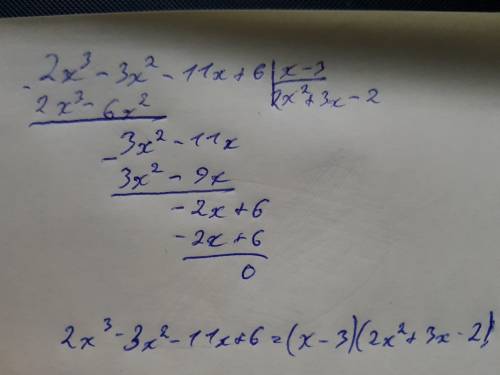 - 2x³ - 3x² - 11x + 6 | x - 3
2x³ - 6x² 2x² + 3x - 2
- 3x² - 11x
3x² - 9x
- 2x + 6
- 2x + 6
0
2x³ - 3x² - 11x + 6 = (x - 3)(2x² + 3x - 2)